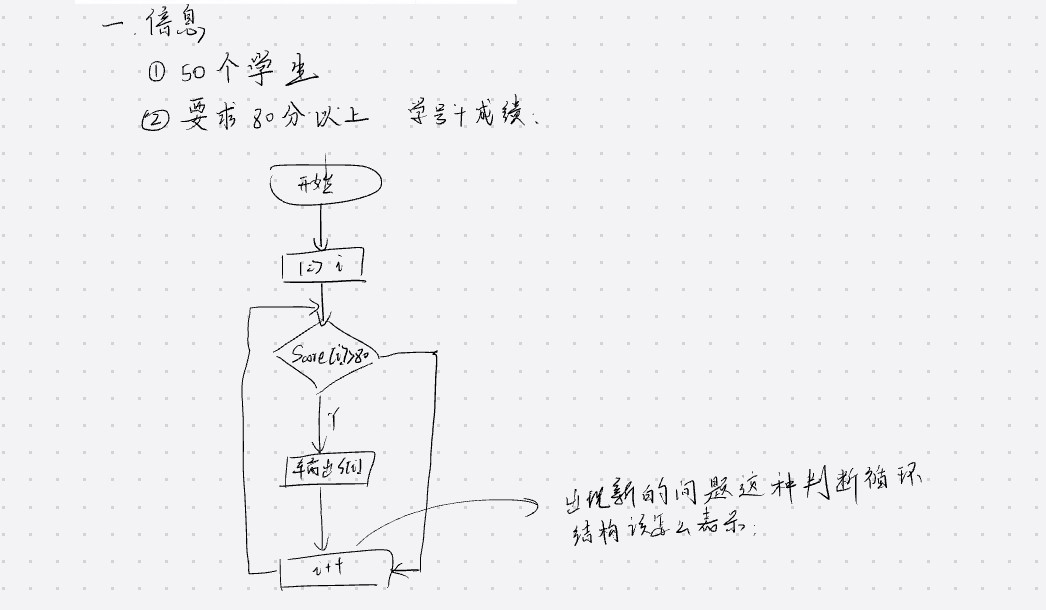 一. 信息
① 50个学生
② 要求80分以上 学号+成绩.
开始
1=> i
Score[i]>80
Y
输出S[i]
i++
出现新的问题这种判断循环
结构该怎么表示.